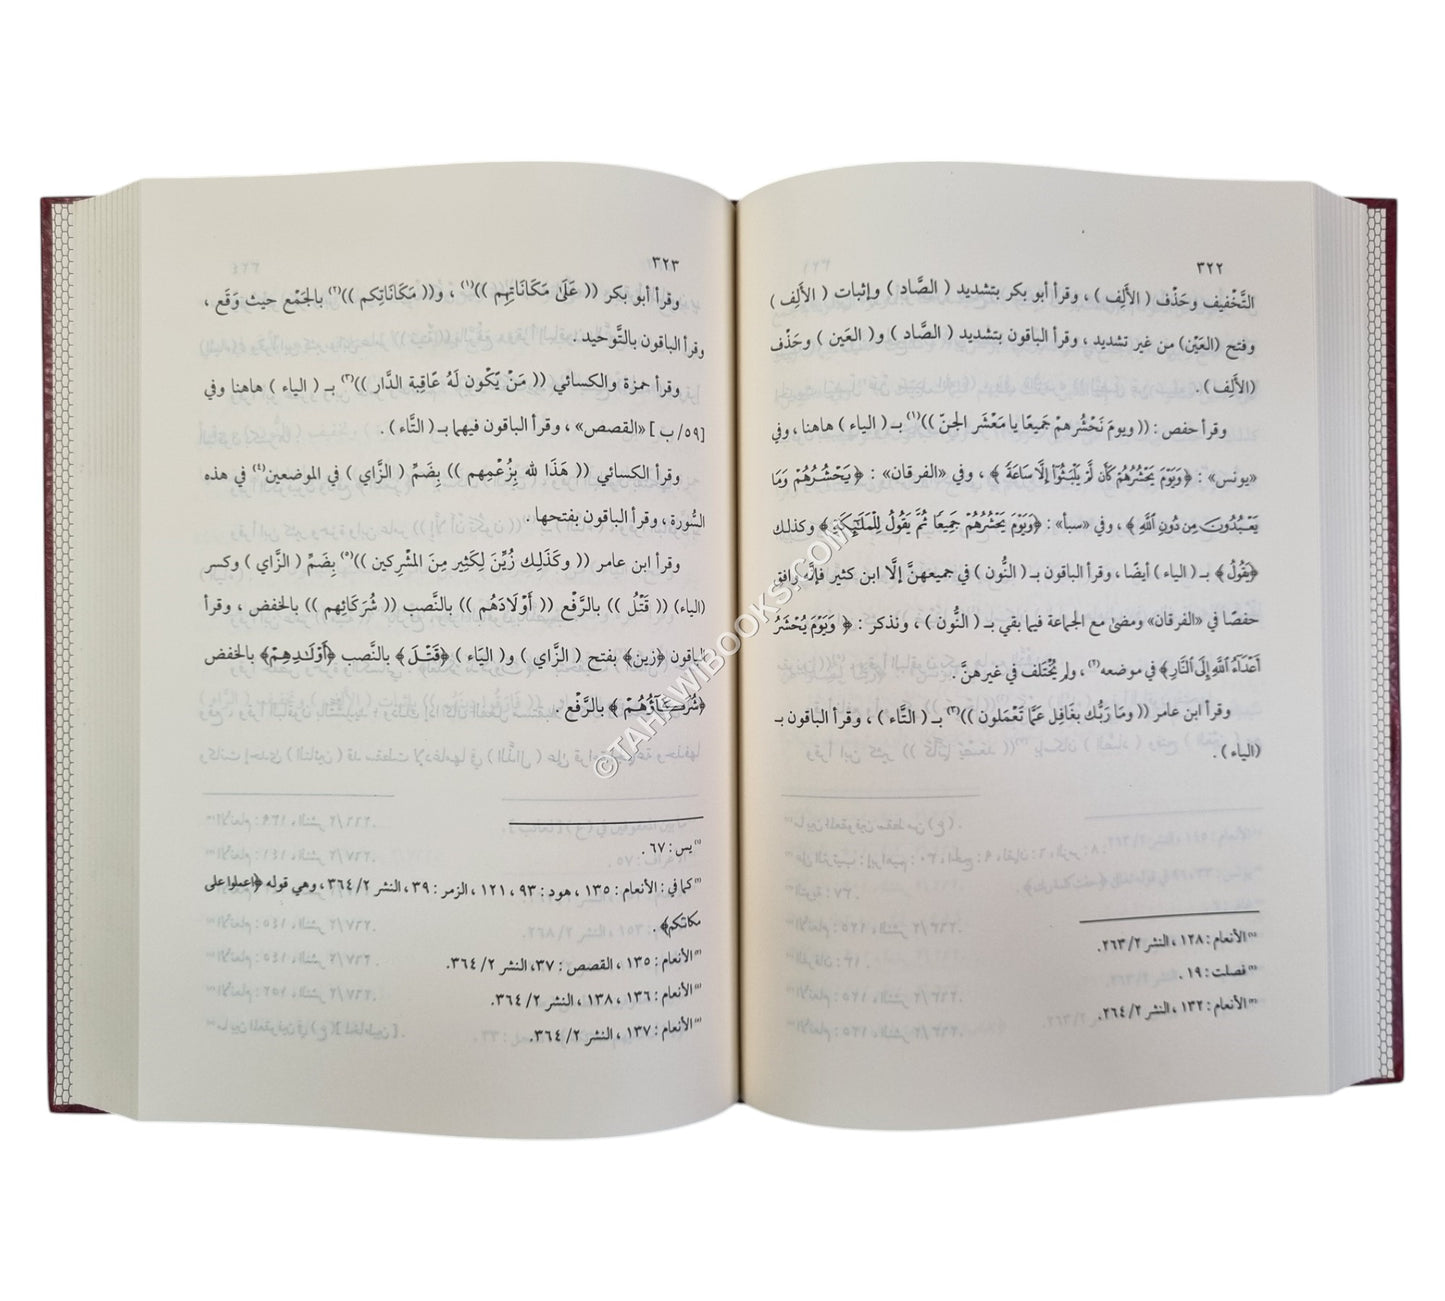 ٣٢٢
التَّخْفيف وحَذْف ( الأَلِف ) ، وقرأ أبو بكر بتشديد ( الصَّاد ) وإثبات ( الأَلِف )
وفتح (العَيْن) من غير تشديد ، وقرأ الباقون بتشديد ( الصَّاد ) و( العَين ) وحَذْف
(الأَلِف ) .
وقرأ حفص : (( ويومَ نَحْشُرهمْ جَميعًا يا مَعْشَر الجنّ ))(١) بـ ( الياء ) هاهنا ، وفي
«يونس» : ﴿وَيَوْمَ يَحْشُرُهُمْ كَأَن لَّمْ يَلْبَثُوٓا۟ إِلَّا سَاعَةً ﴾ ، وفي «الفرقان» : ﴿ يَحْشُرُهُمْ وَمَا
يَعْبُدُونَ مِن دُونِ ٱللَّهِ ﴾ ، وفي «سبأ» : ﴿وَيَوْمَ يَحْشُرُهُمْ جَمِيعًا ثُمَّ يَقُولُ لِلْمَلَٰٓئِكَةِ ﴾ وكذلك
﴿يَقُولُ ﴾ بـ ( الياء ) أيضًا ، وقرأ الباقون بـ ( النُّون ) في جميعهنَّ إلَّا ابن كثير فإنَّه وافق
حفصًا في «الفرقان» ومضىٰ مع الجماعة فيما بقي بـ ( النُّون ) ، ونذكر : ﴿ وَيَوْمَ يُحْشَرُ
أَعْدَآءُ ٱللَّهِ إِلَى ٱلنَّارِ ﴾ في موضعه(٢) ، ولم يُخْتلف في غيرهنَّ .
وقرأ ابن عامر (( ومَا رَبُّك بِغَافِل عَمَّا تَعْمَلون ))(٣) بـ ( التَّاء ) ، وقرأ الباقون بـ
(الياء ) .
(١) الأنعام : ١٢٨ ، النشر ٢/ ٢٦٣.
(٢) فصلت : ١٩ .
(٣) الأنعام : ١٣٢ ، النشر ٢/ ٢٦٤ .
٣٢٣
وقرأ أبو بكر (( عَلَىٰ مَكَانَاتِهِم ))(١) ، و(( مَكَانَاتِكم ))(٢) بالجَمْع حيث وَقَع ،
وقرأ الباقون بالتَّوحيد .
وقرأ حمزة والكسائي (( مَنْ يَكُون لَهُ عَاقِبة الدَّار ))(٣) بـ ( الياء ) هاهنا وفي
[٥٩/ ب ] «القصص» ، وقرأ الباقون فيهما بـ ( التَّاء ) .
وقرأ الكسائي (( هَذَا لله بِزُعْمِهم )) بِضَمِّ ( الزَّاي ) في الموضعين(٤) في هذه
السُّورة ، وقرأ الباقون بفتحها .
وقرأ ابن عامر (( وكَذَلِك زُيِّنَ لِكَثِير مِنَ المُشْرِكين ))(٥) بِضَمِّ ( الزَّاي ) وكسر
(الياء) (( قَتْلُ )) بالرَّفْع (( أَوْلَادَهُم )) بالنَّصب (( شُرَكَائِهم )) بالخفض ، وقرأ
الباقون ﴿زين﴾ بفتح ( الزَّاي ) و( اليَاء ) ﴿قَتْلَ ﴾ بالنَّصب ﴿أَوْلَٰدِهِمْ﴾ بالخفض
﴿شُرَكَآؤُهُمْ ﴾ بالرَّفْع .
(١) يس : ٦٧ .
(٢) كما في : الأنعام : ١٣٥ ، هود : ٩٣ ، ١٢١ ، الزمر : ٣٩ ، النشر ٢/ ٢٦٤ ، وهي قوله ﴿اعملوا على
مكانتكم﴾ .
(٣) الأنعام : ١٣٥ ، القصص : ٣٧، النشر ٢/ ٢٦٤.
(٤) الأنعام : ١٣٦ ، ١٣٨ ، النشر ٢/ ٢٦٤.
(٥) الأنعام : ١٣٧ ، النشر ٢/ ٢٦٤.
©TAHAWIBOOKS.COM